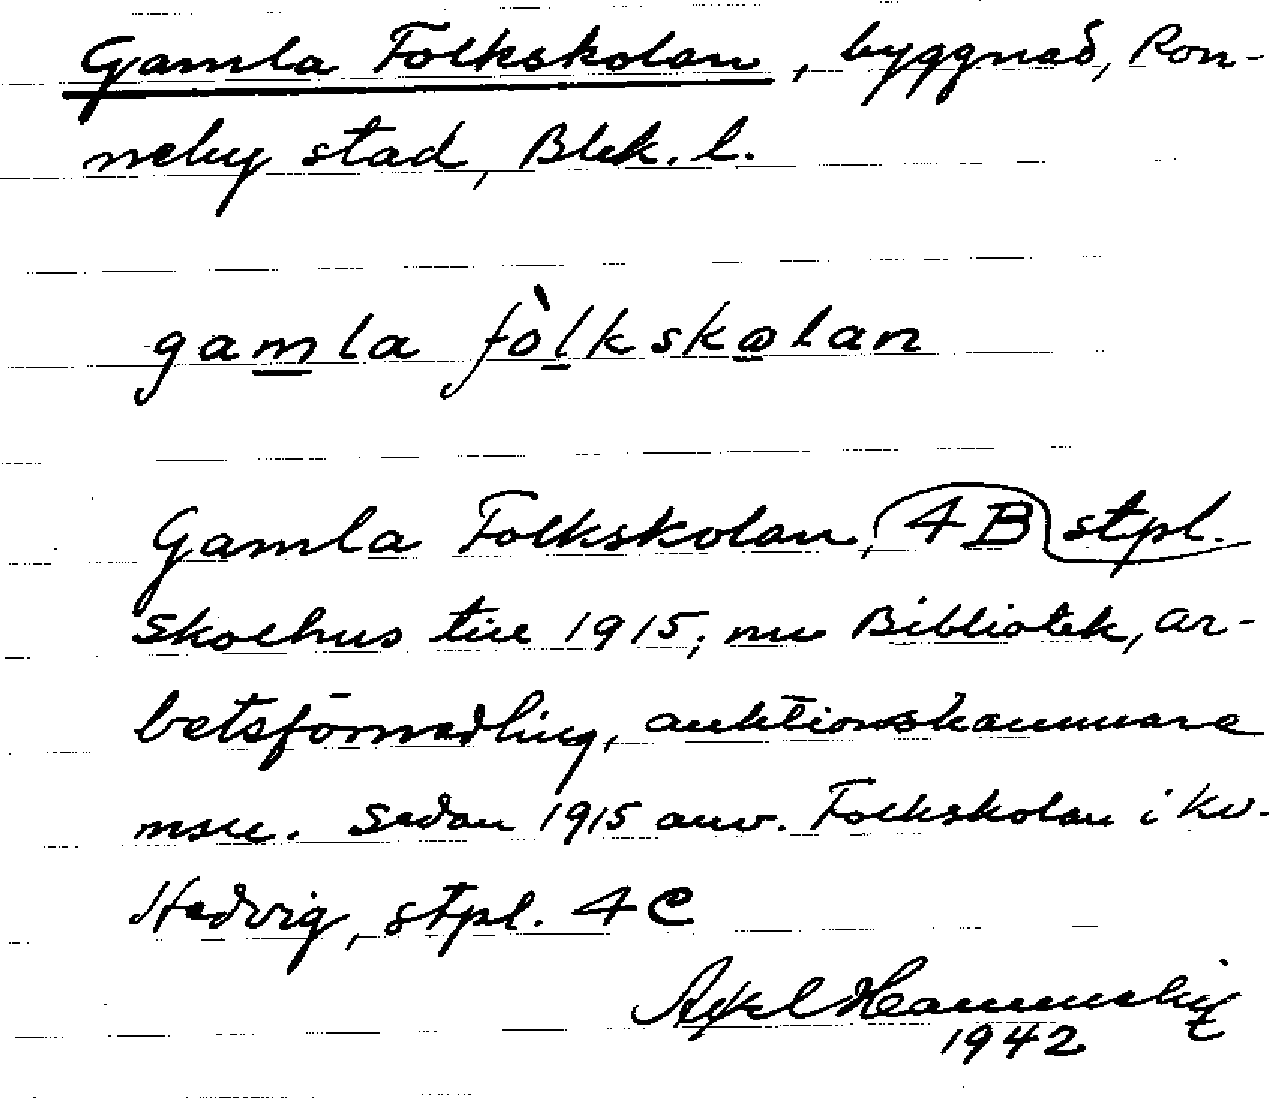 Gamla Folkskolan, byggnad, Ron-
neby stad, Blek. l.
gamla fòlkskolan
Gamla Folkskolan, 4B stpl.
skolhus till 1915; nu Bibliotek, ar-
betsförmedling, auktionskammare
m m. Sedan 1915 anv. Folkskolan i kv.
Hedvig, stpl. 4C
Axel
1942